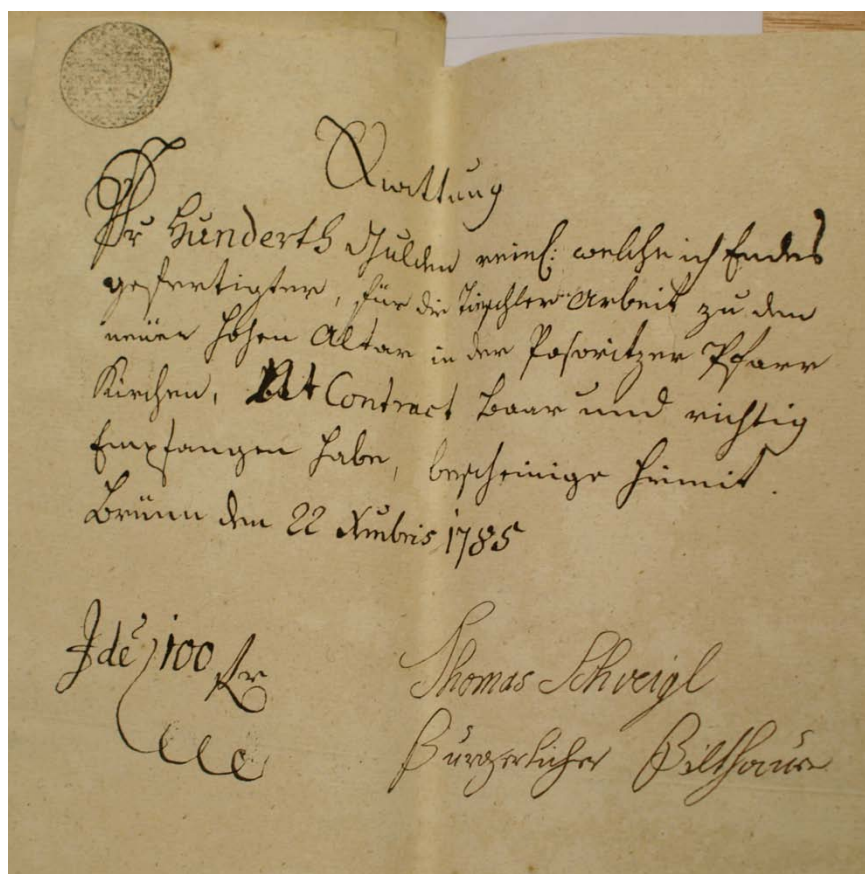 Quittung
Pr Hunderth Gulden reinl: welche ich Endes
gefertigter, für die Tischler Arbeit zu dem
neüen Hohen Altar in der Posoritzer Pfarr
Kirchen, Contract baar und richtig
Empfangen habe, bescheinige hiemit.
Brünn den 22 Xmbris 1785
Id est 100 fr
Thomas Schweigl
Bürgerlicher Bilthauer